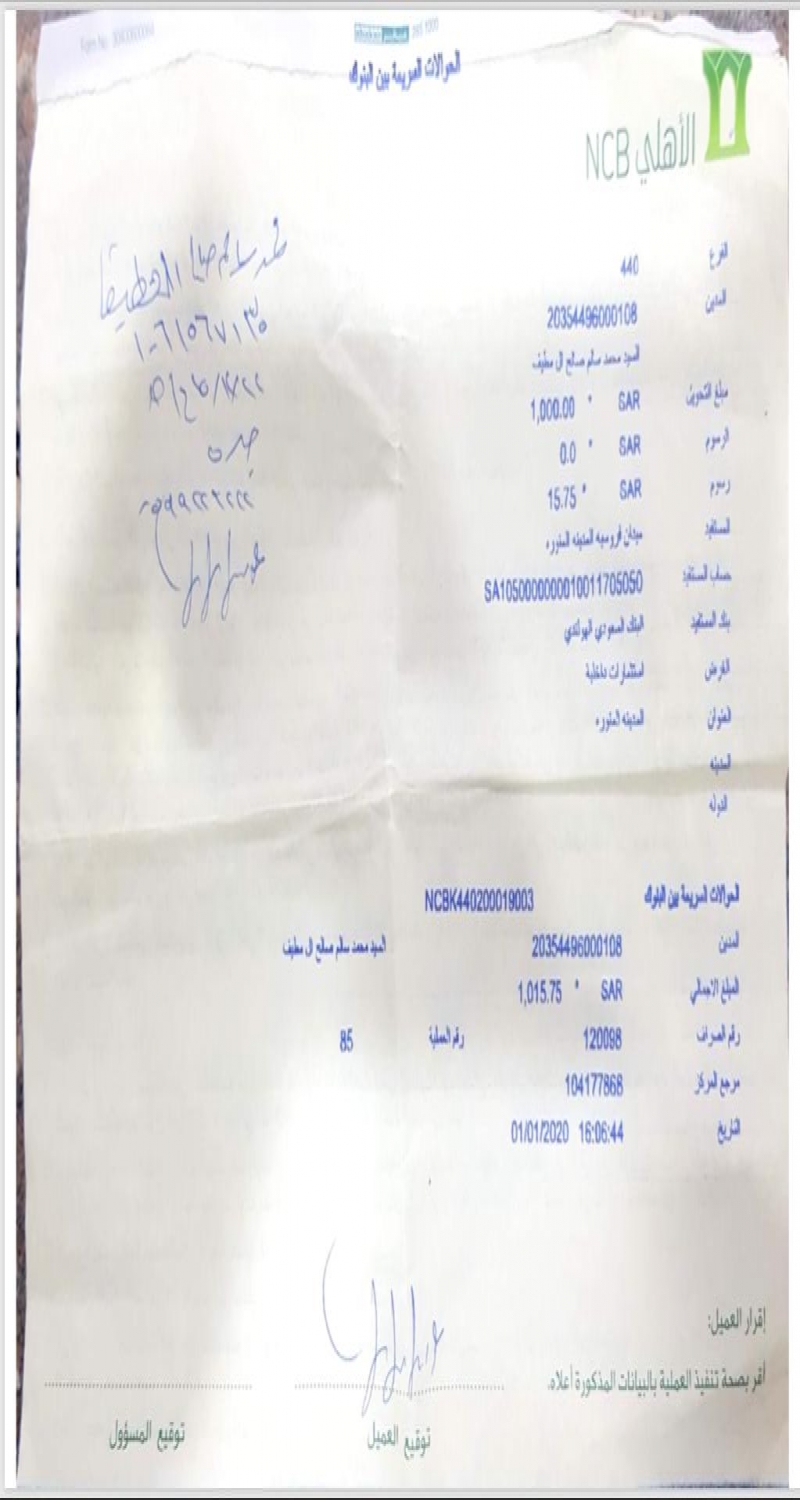 الحوالات السريعة بين البنوك
الأهلي NCB
الفرع 440
المدين 20354496000108
السيد محمد سالم صالح ال مطيف
مبلغ التحويل SAR * 1,000.00
الرسوم SAR * 0.0
رسوم SAR * 15.75
المستفيد ميدان فروسيه المدينه المنوره
حساب المستفيد SA1050000000010011705050
بنك المستفيد البنك السعودي الهولندي
الغرض استثمارات داخلية
العنوان المدينه المنوره
المدينه
الدوله
جده
الحوالات السريعة بين البنوك NCBK440200019003
المدين 20354496000108 السيد محمد سالم صالح ال مطيف
المبلغ الاجمالي SAR * 1,015.75
رقم الصراف 120098 رقم العملية 85
مرجع المركز 104177868
التاريخ 01/01/2020 16:06:44
إقرار العميل:
أقر بصحة تنفيذ العملية بالبيانات المذكورة أعلاه.
توقيع العميل توقيع المسؤول